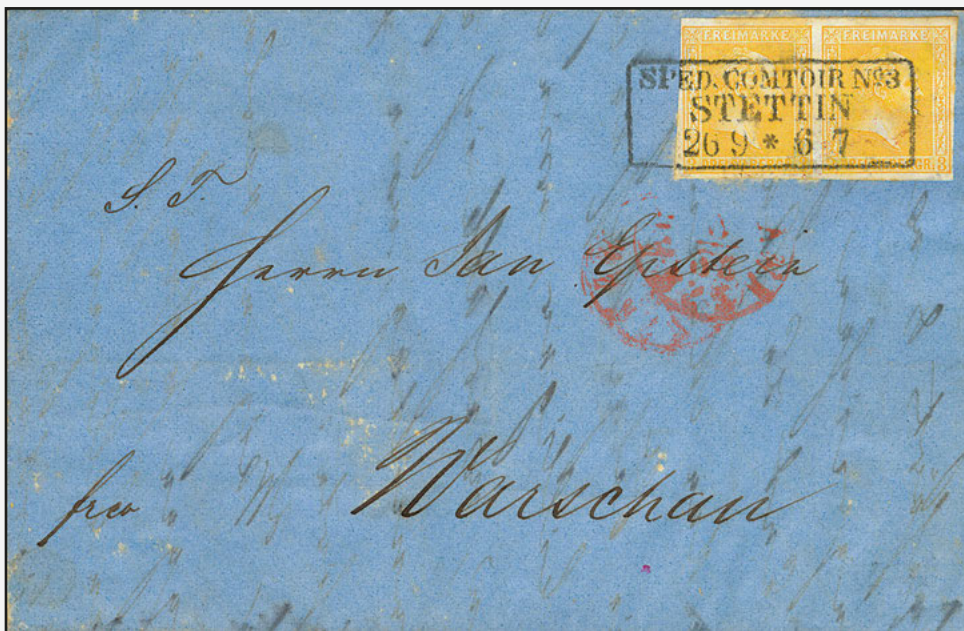 FREIMARKE FREIMARKE
SPED. COMTOIR Nº3
STETTIN
26 9 * 6 7
S. T.
Herrn Jan Epstein
frco Warschau